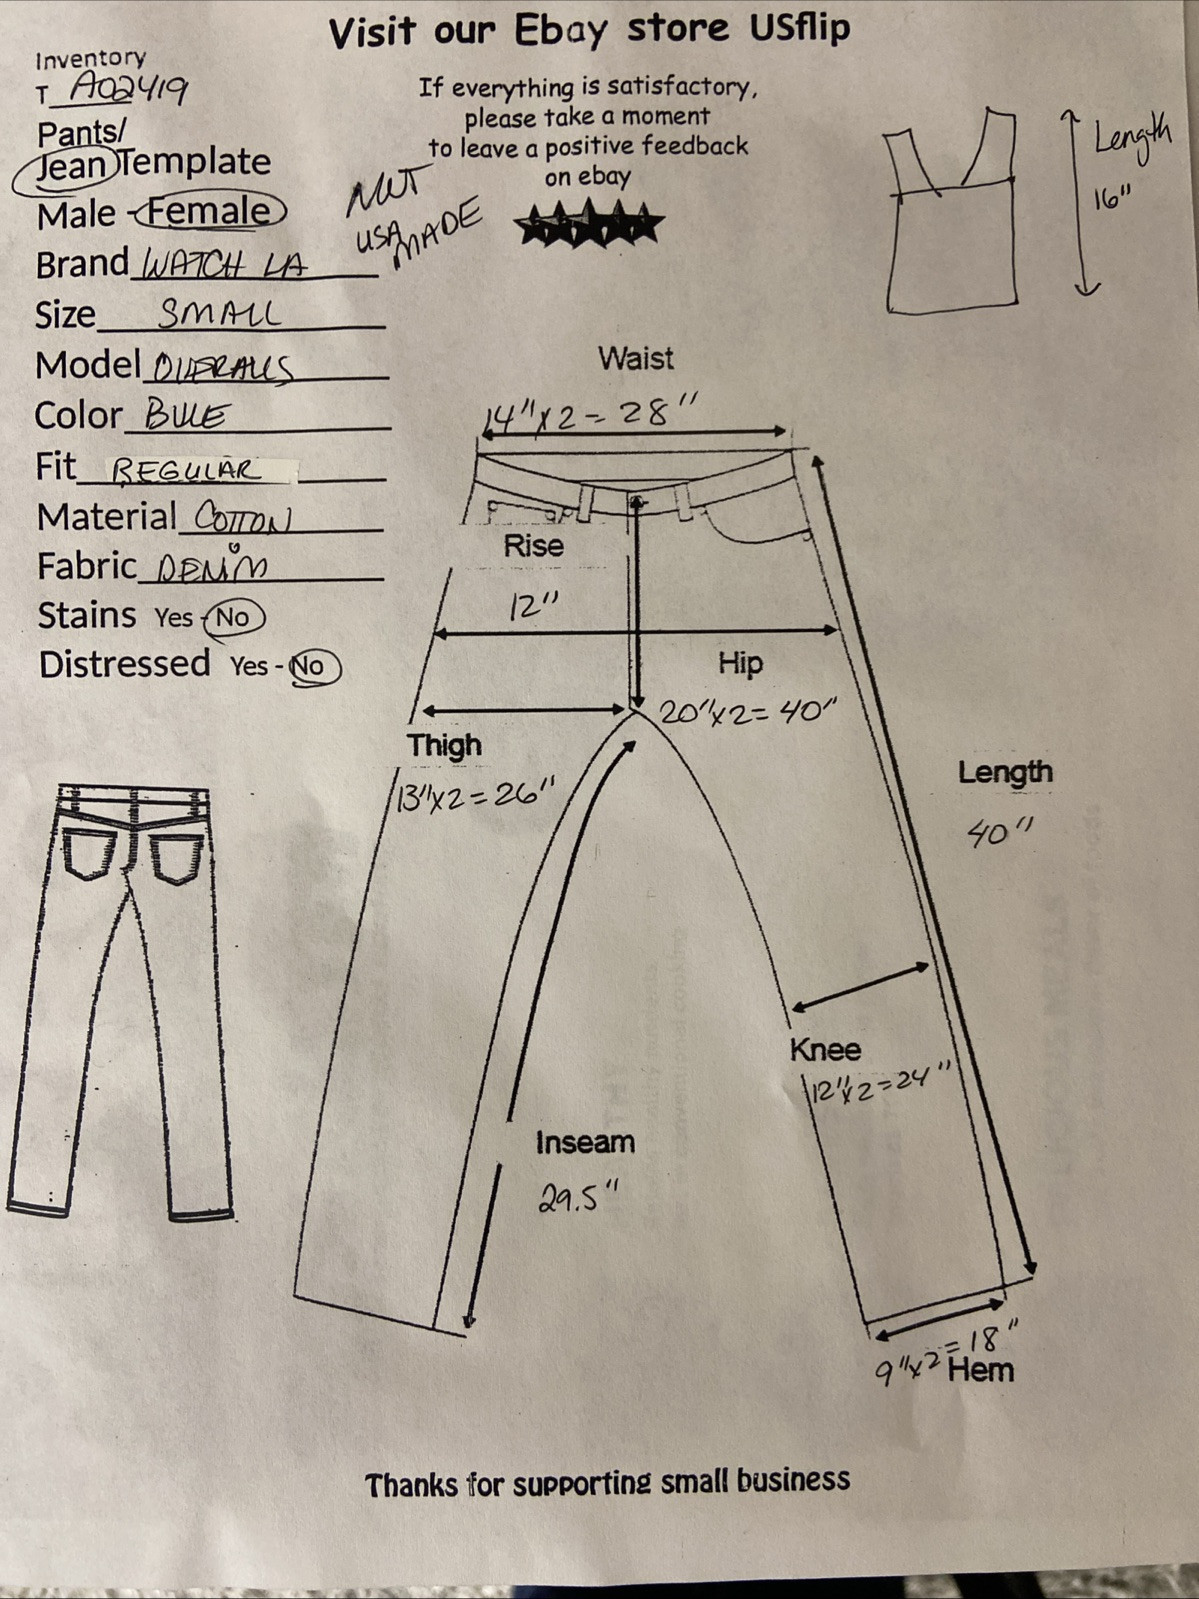 Visit our Ebay store USflip
Inventory
T A02419
Pants/
Jean Template
Male - Female
Brand WATCH LA
Size SMALL
Model OVERALLS
Color BLUE
Fit REGULAR
Material COTTON
Fabric DENIM
Stains Yes - No
Distressed Yes - No
If everything is satisfactory,
please take a moment
to leave a positive feedback
on ebay
NWT
USA MADE
Length
16"
Waist
14" x 2 = 28"
Rise
12"
Hip
20" x 2 = 40"
Thigh
13" x 2 = 26"
Length
40"
Knee
12" x 2 = 24"
Inseam
29.5"
9" x 2 = 18"
Hem
Thanks for supporting small business